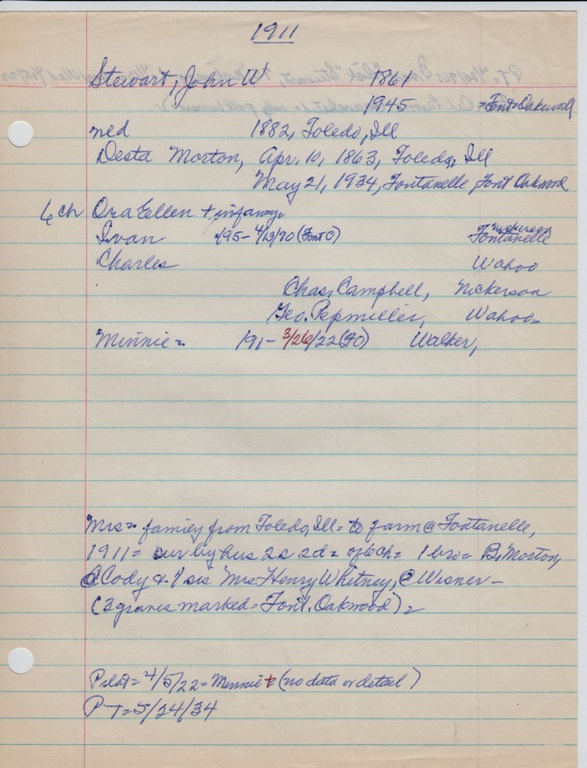 1911
Stewart, John W 1861
1945 =Font=Oakwood
med 1882, Toledo, Ill
Desta Morton, Apr. 10, 1863, Toledo, Ill
May 21, 1934, Fontanelle Font Oakwood
6 ch Ora Ellen + infancy
Nickerson
Ivan 195- 4/13/70 (Font O) Fontanelle
Charles Wahoo
Chas. Campbell, Nickerson
Geo. Pepmiller, Wahoo
Minnie= 191- 3/26/22 (FO) Walker,
Mrs= family from Toledo, Ill= to farm @ Fontanelle,
1911= sur by hus 2s 2d= of 6 ch= 1 bro= B. Morton,
@ Cody & 1 sis Mrs Henry Whitney, @ Wisner-
(2 graves marked= Font. Oakwood)=
Pilot= 4/5/22= Minnie (no data or detail)
P T= 5/24/34